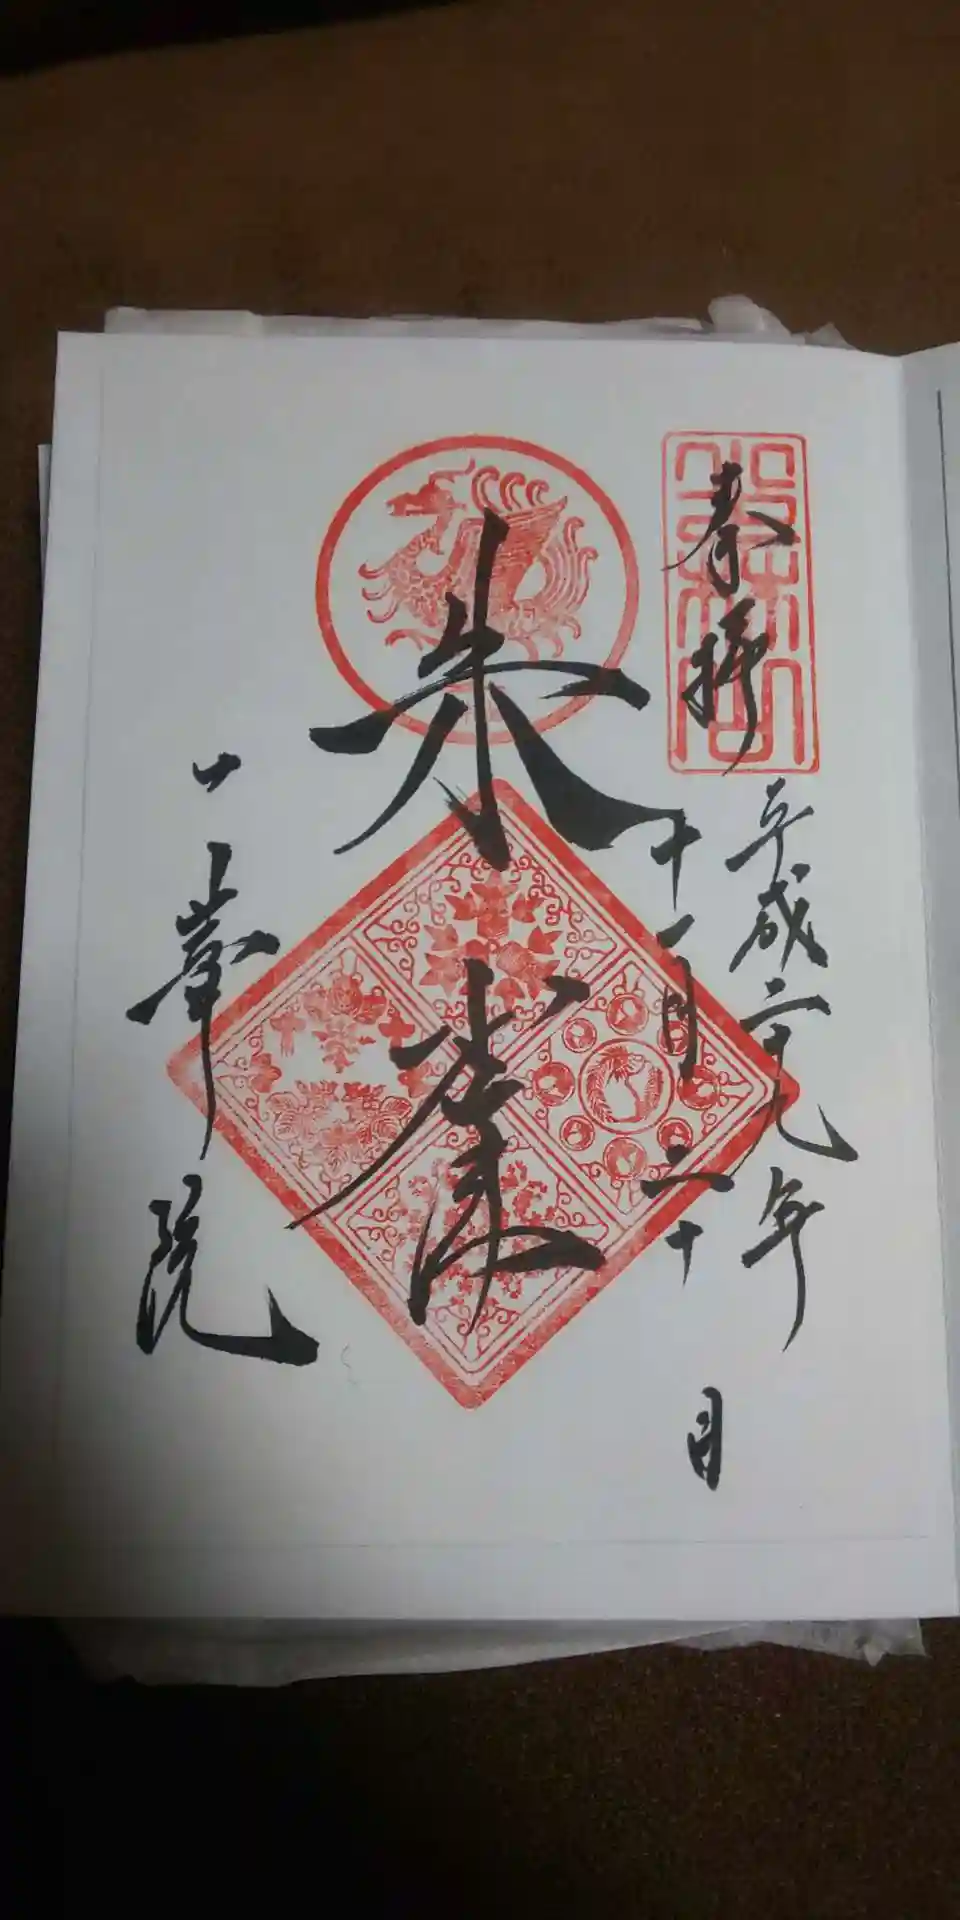 奉拝
平成二十九年
十一月二十日
朱雀
一峯院